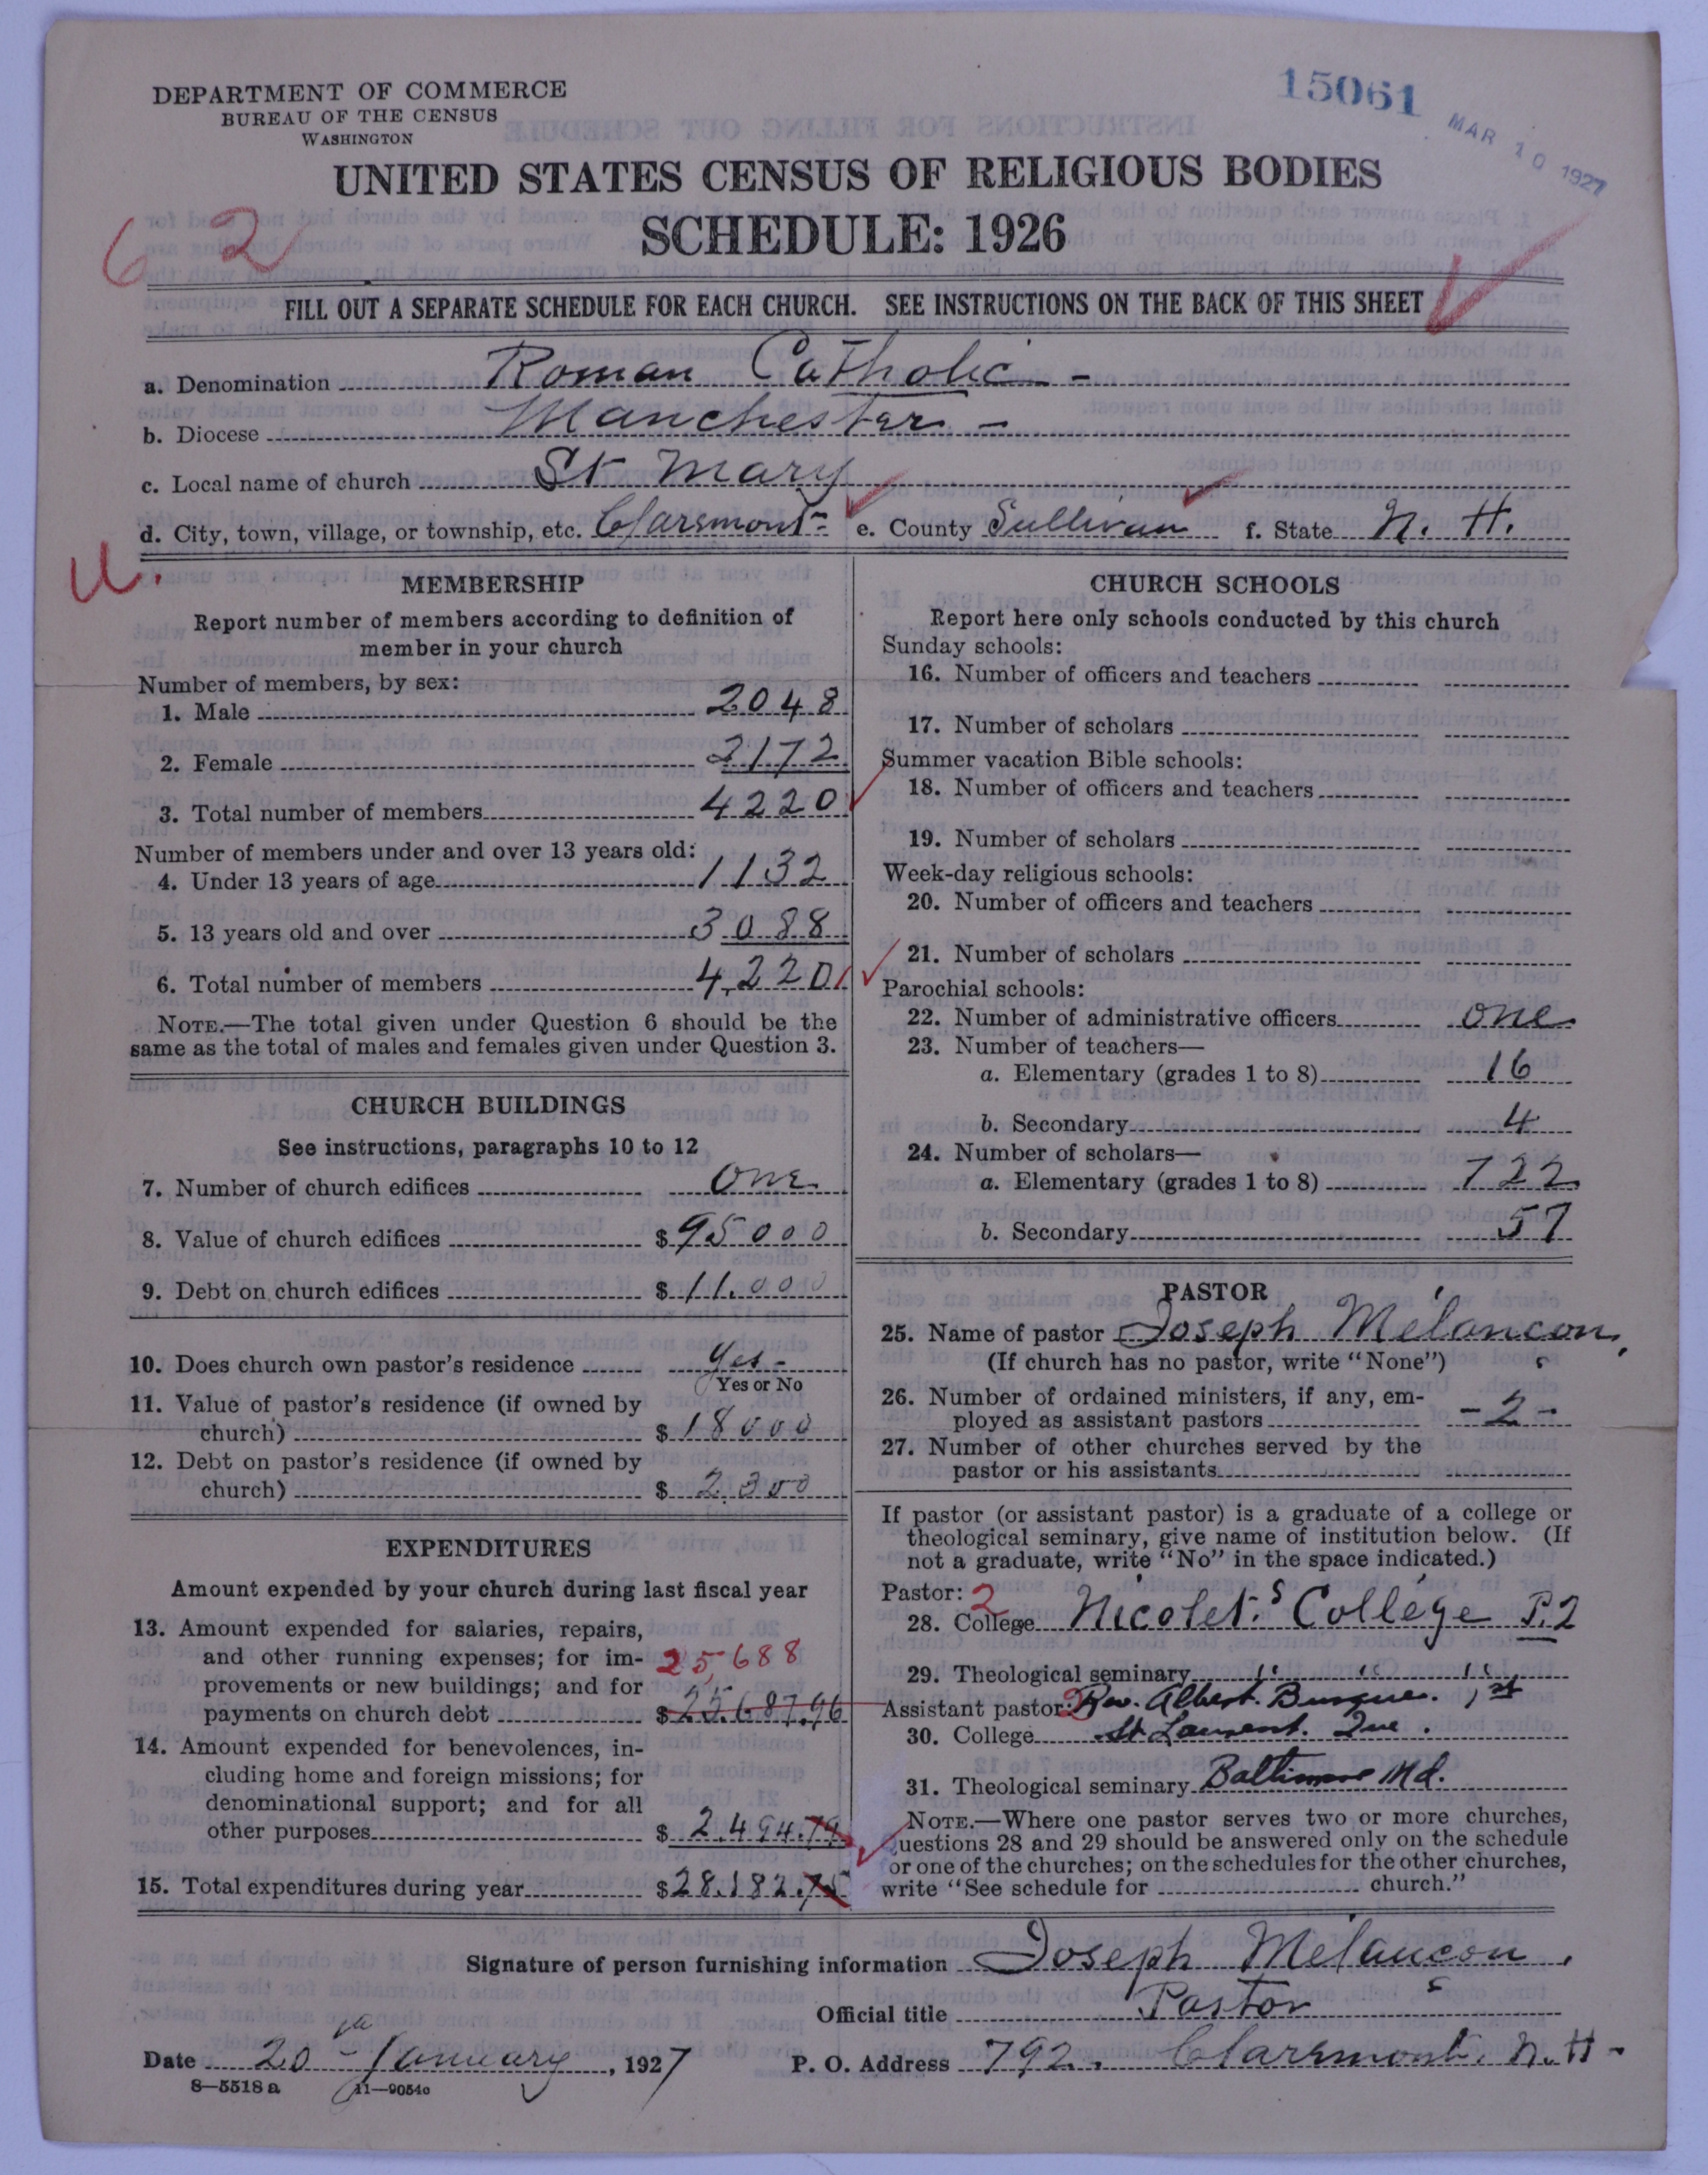 DEPARTMENT OF COMMERCE
BUREAU OF THE CENSUS
WASHINGTON
15061
MAR 10 1927
UNITED STATES CENSUS OF RELIGIOUS BODIES
SCHEDULE: 1926
62
FILL OUT A SEPARATE SCHEDULE FOR EACH CHURCH. SEE INSTRUCTIONS ON THE BACK OF THIS SHEET
a. Denomination Roman Catholic -
b. Diocese Manchester -
c. Local name of church St Mary
d. City, town, village, or township, etc. Claremont - e. County Sullivan f. State N. H.
U.
MEMBERSHIP
Report number of members according to definition of
member in your church
Number of members, by sex:
1. Male 2048
2. Female 2172
3. Total number of members 4220
Number of members under and over 13 years old:
4. Under 13 years of age 1132
5. 13 years old and over 3088
6. Total number of members 4220
NOTE.—The total given under Question 6 should be the
same as the total of males and females given under Question 3.
CHURCH BUILDINGS
See instructions, paragraphs 10 to 12
7. Number of church edifices one
8. Value of church edifices $ 95000
9. Debt on church edifices $ 11.000
10. Does church own pastor's residence yes -
Yes or No
11. Value of pastor's residence (if owned by
church) $ 18000
12. Debt on pastor's residence (if owned by
church) $ 2.300
EXPENDITURES
Amount expended by your church during last fiscal year
13. Amount expended for salaries, repairs,
and other running expenses; for im-
provements or new buildings; and for
payments on church debt $ 25.687.96
25,688
14. Amount expended for benevolences, in-
cluding home and foreign missions; for
denominational support; and for all
other purposes $ 2.494.79
15. Total expenditures during year $ 28.182.75
CHURCH SCHOOLS
Report here only schools conducted by this church
Sunday schools:
16. Number of officers and teachers
17. Number of scholars
Summer vacation Bible schools:
18. Number of officers and teachers
19. Number of scholars
Week-day religious schools:
20. Number of officers and teachers
21. Number of scholars
Parochial schools:
22. Number of administrative officers one
23. Number of teachers—
a. Elementary (grades 1 to 8) 16
b. Secondary 4
24. Number of scholars—
a. Elementary (grades 1 to 8) 722
b. Secondary 57
PASTOR
25. Name of pastor Joseph Mélançon.
(If church has no pastor, write "None")
26. Number of ordained ministers, if any, em-
ployed as assistant pastors - 2 -
27. Number of other churches served by the
pastor or his assistants
If pastor (or assistant pastor) is a graduate of a college or
theological seminary, give name of institution below. (If
not a graduate, write "No" in the space indicated.)
Pastor: 2
28. College Nicolet's College P.2
29. Theological seminary " " "
Assistant pastor: 2 Rev. Albert 1st
30. College St Laurent. Que.
31. Theological seminary Baltimore Md.
NOTE.—Where one pastor serves two or more churches,
uestions 28 and 29 should be answered only on the schedule
or one of the churches; on the schedules for the other churches,
write "See schedule for church."
Signature of person furnishing information Joseph Mélançon.
Official title Pastor
Date 20 - January, 1927 P. O. Address 792. Claremont. N. H -
8—5518 a 11—9054c